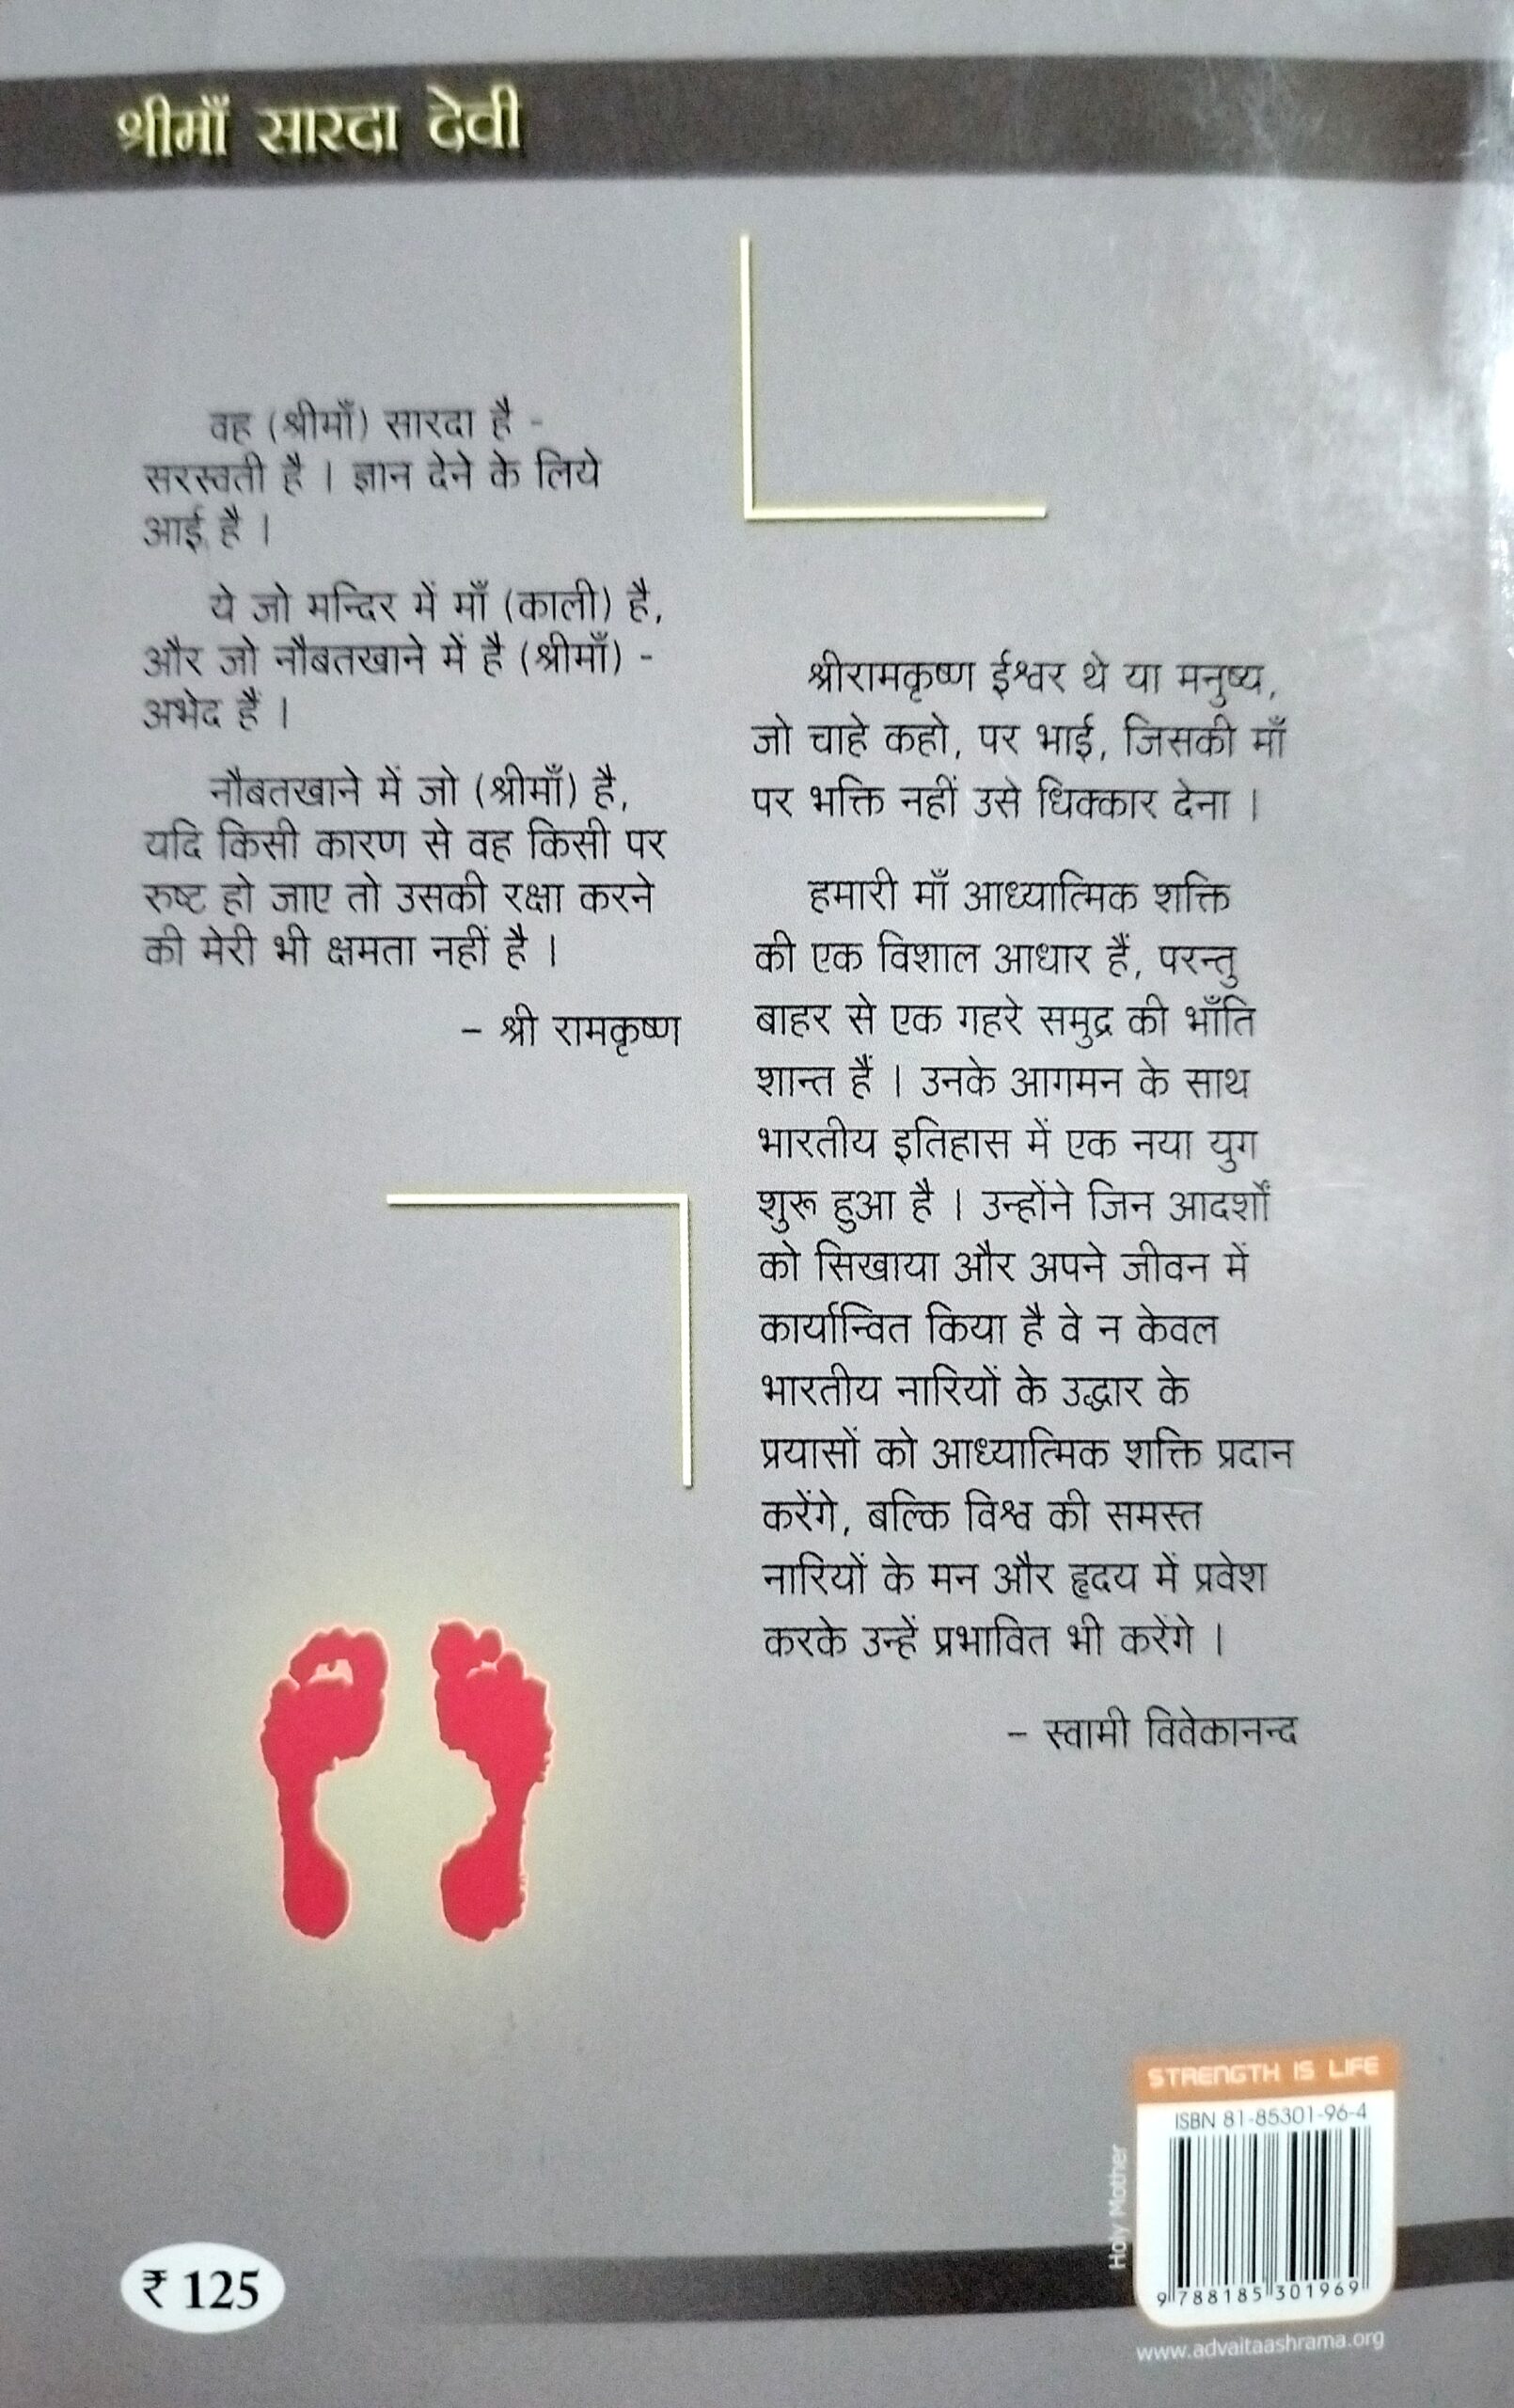 श्रीमाँ सारदा देवी
वह (श्रीमाँ) सारदा है -
सरस्वती है । ज्ञान देने के लिये
आई है ।
ये जो मन्दिर में माँ (काली) है,
और जो नौबतखाने में है (श्रीमाँ) -
अभेद हैं ।
नौबतखाने में जो (श्रीमाँ) है,
यदि किसी कारण से वह किसी पर
रुष्ट हो जाए तो उसकी रक्षा करने
की मेरी भी क्षमता नहीं है ।
– श्री रामकृष्ण
श्रीरामकृष्ण ईश्वर थे या मनुष्य,
जो चाहे कहो, पर भाई, जिसकी माँ
पर भक्ति नहीं उसे धिक्कार देना ।
हमारी माँ आध्यात्मिक शक्ति
की एक विशाल आधार हैं, परन्तु
बाहर से एक गहरे समुद्र की भाँति
शान्त हैं । उनके आगमन के साथ
भारतीय इतिहास में एक नया युग
शुरू हुआ है । उन्होंने जिन आदर्शों
को सिखाया और अपने जीवन में
कार्यान्वित किया है वे न केवल
भारतीय नारियों के उद्धार के
प्रयासों को आध्यात्मिक शक्ति प्रदान
करेंगे, बल्कि विश्व की समस्त
नारियों के मन और हृदय में प्रवेश
करके उन्हें प्रभावित भी करेंगे ।
– स्वामी विवेकानन्द
STRENGTH IS LIFE
ISBN 81-85301-96-4
Holy Mother
9 788185 301969
www.advaitaashrama.org
₹ 125